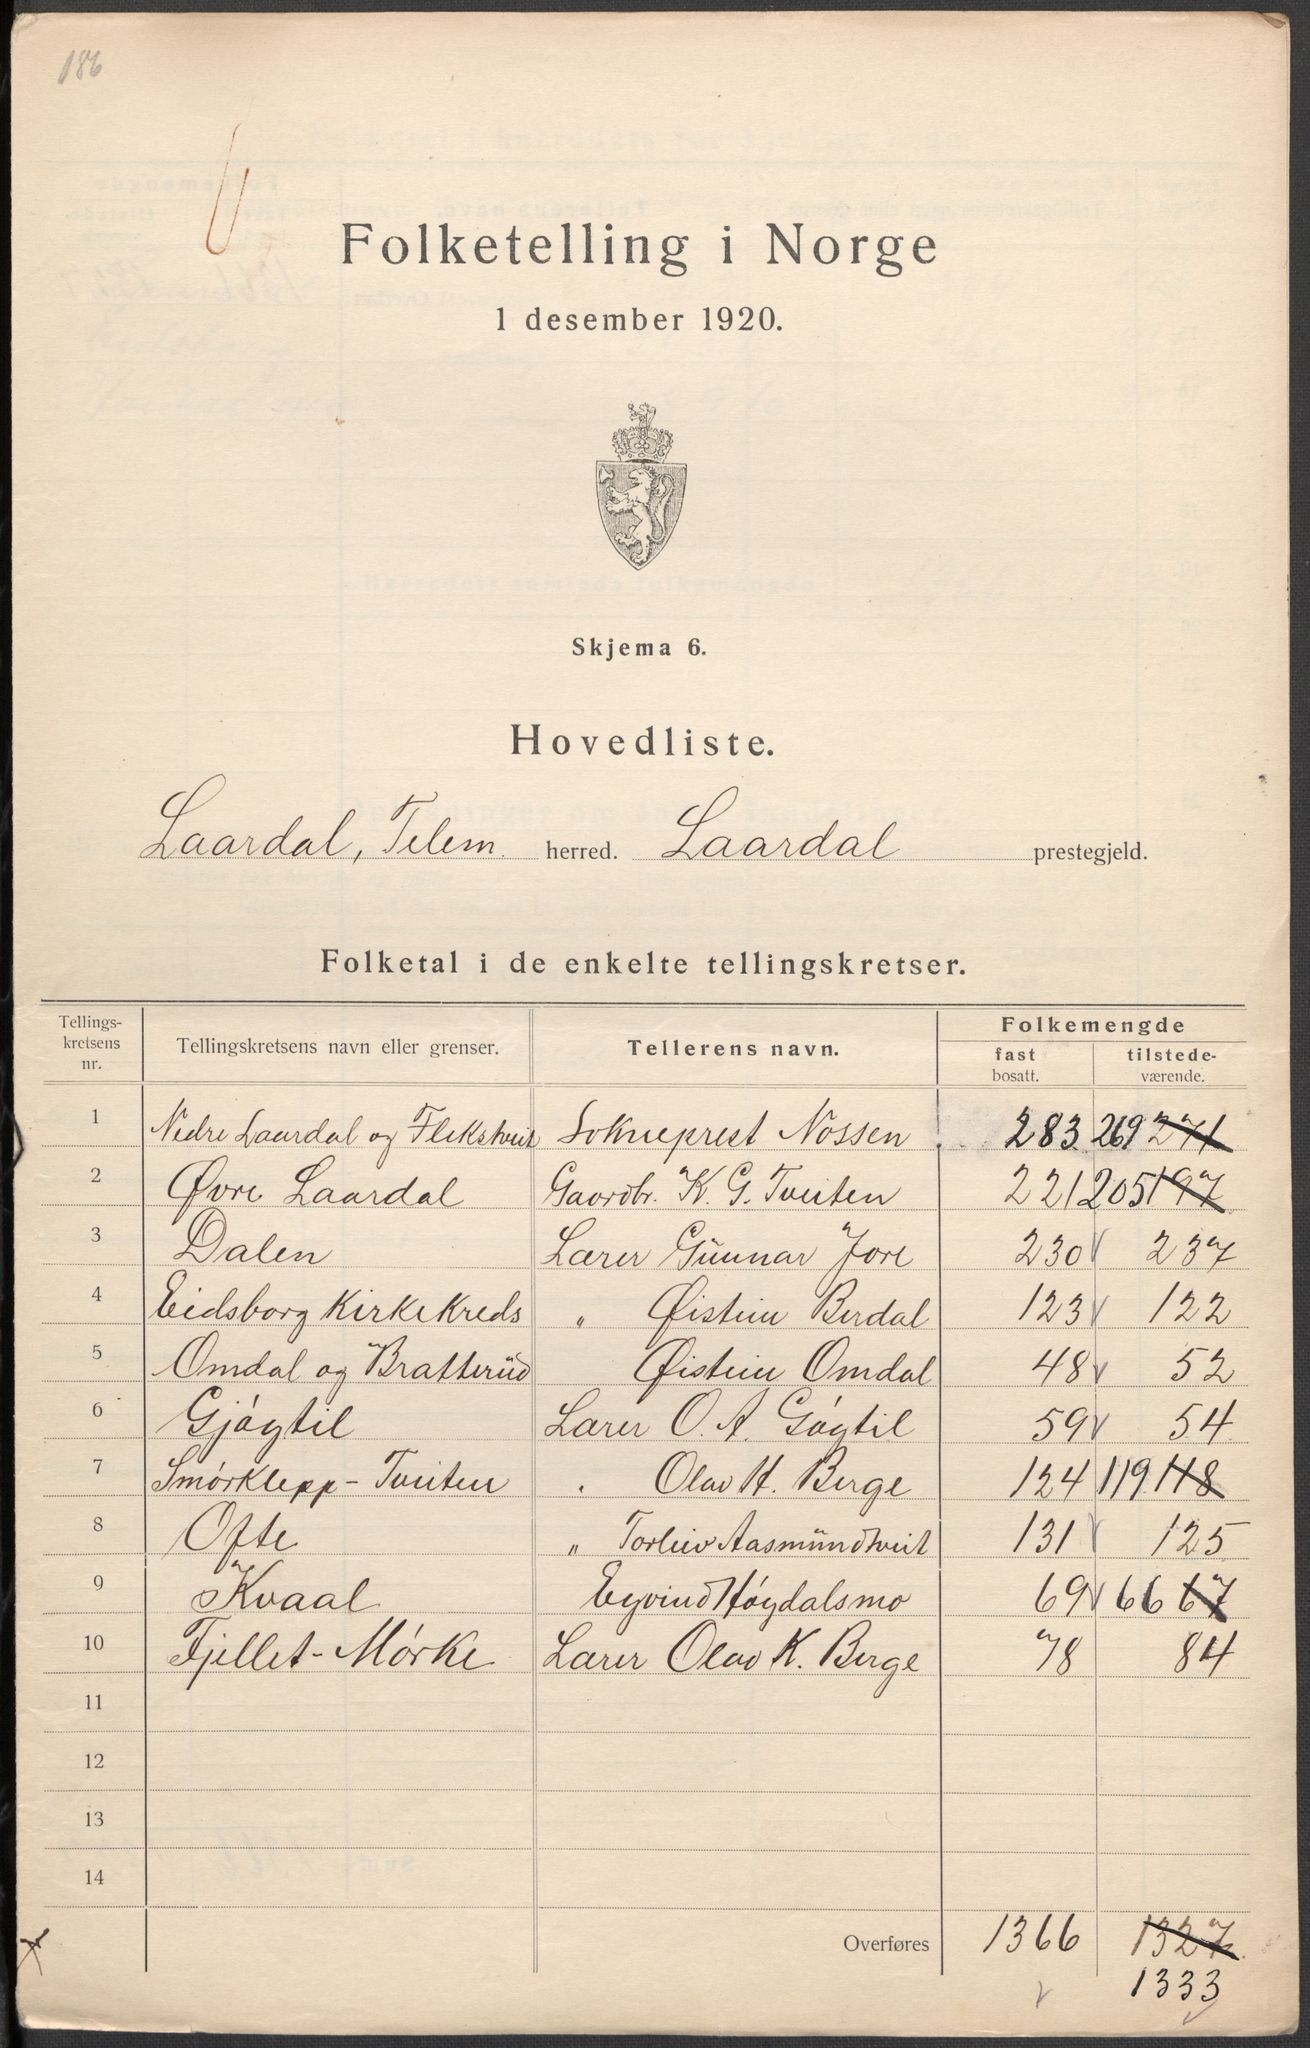 186
Folketelling i Norge
1 desember 1920.
Skjema 6.
Hovedliste.
Laardal, Telem. herred. Laardal prestegjeld.
Folketal i de enkelte tellingskretser.
Tellings-kretsens nr. Tellingskretsens navn eller grenser. Tellerens navn. Folkemengde fast bosatt. tilstede-værende.
1 Nedre Laardal og Flekstveit Sokneprest Nossen 283 269 271
2 Øvre Laardal Gaardbr. K. G. Tveiten 221 205 197
3 Dalen Lærer Gunnar Jore 230 237
4 Eidsborg Kirkekreds " Øistein Berdal 123 122
5 Omdal og Bratterud Øistein Omdal 48 52
6 Gjøgtil Lærer O. A. Gøgtil 59 54
7 Smørklepp - Tveiten " Olav H. Berge 124 119 118
8 Ofte " Torleiv Aasmundtveit 131 125
9 Kvaal Eyvind Høydalsmo 69 66 67
10 Fjellet - Mørke Lærer Olav K. Berge 78 84
11
12
13
14
Overføres 1366 1327
1333